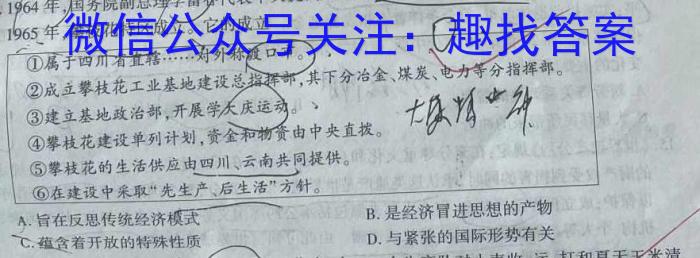 1964年,国务院副总理
1965年
成立。它的成立
微信公众号关注：趣找答案
①属于四川省直辖……对外称渡口市。
②成立攀枝花工业基地建设总指挥部,其下分冶金、煤炭、电力等分指挥部。
③建立基地政治部,开展学大庆运动。
④攀枝花建设单列计划,资金和物资由中央直拨。
⑤攀枝花的生活供应由四川、云南共同提供。
⑥在建设中采取“先生产,后生活”方针。
A.旨在反思传统经济模式
B.是经济冒进思想的产物
C.蕴含着开放的特殊性质
D.与紧张的国际形势有关